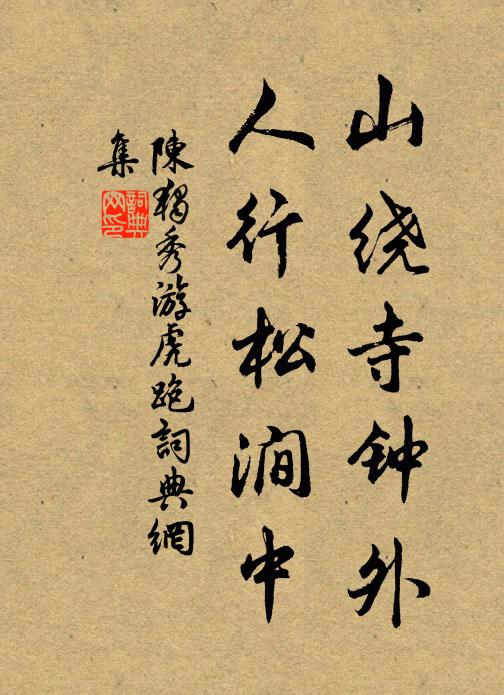 山绕寺钟外
人行松涧中
陳獨秀游虎跑詞典網
集
詞典網印